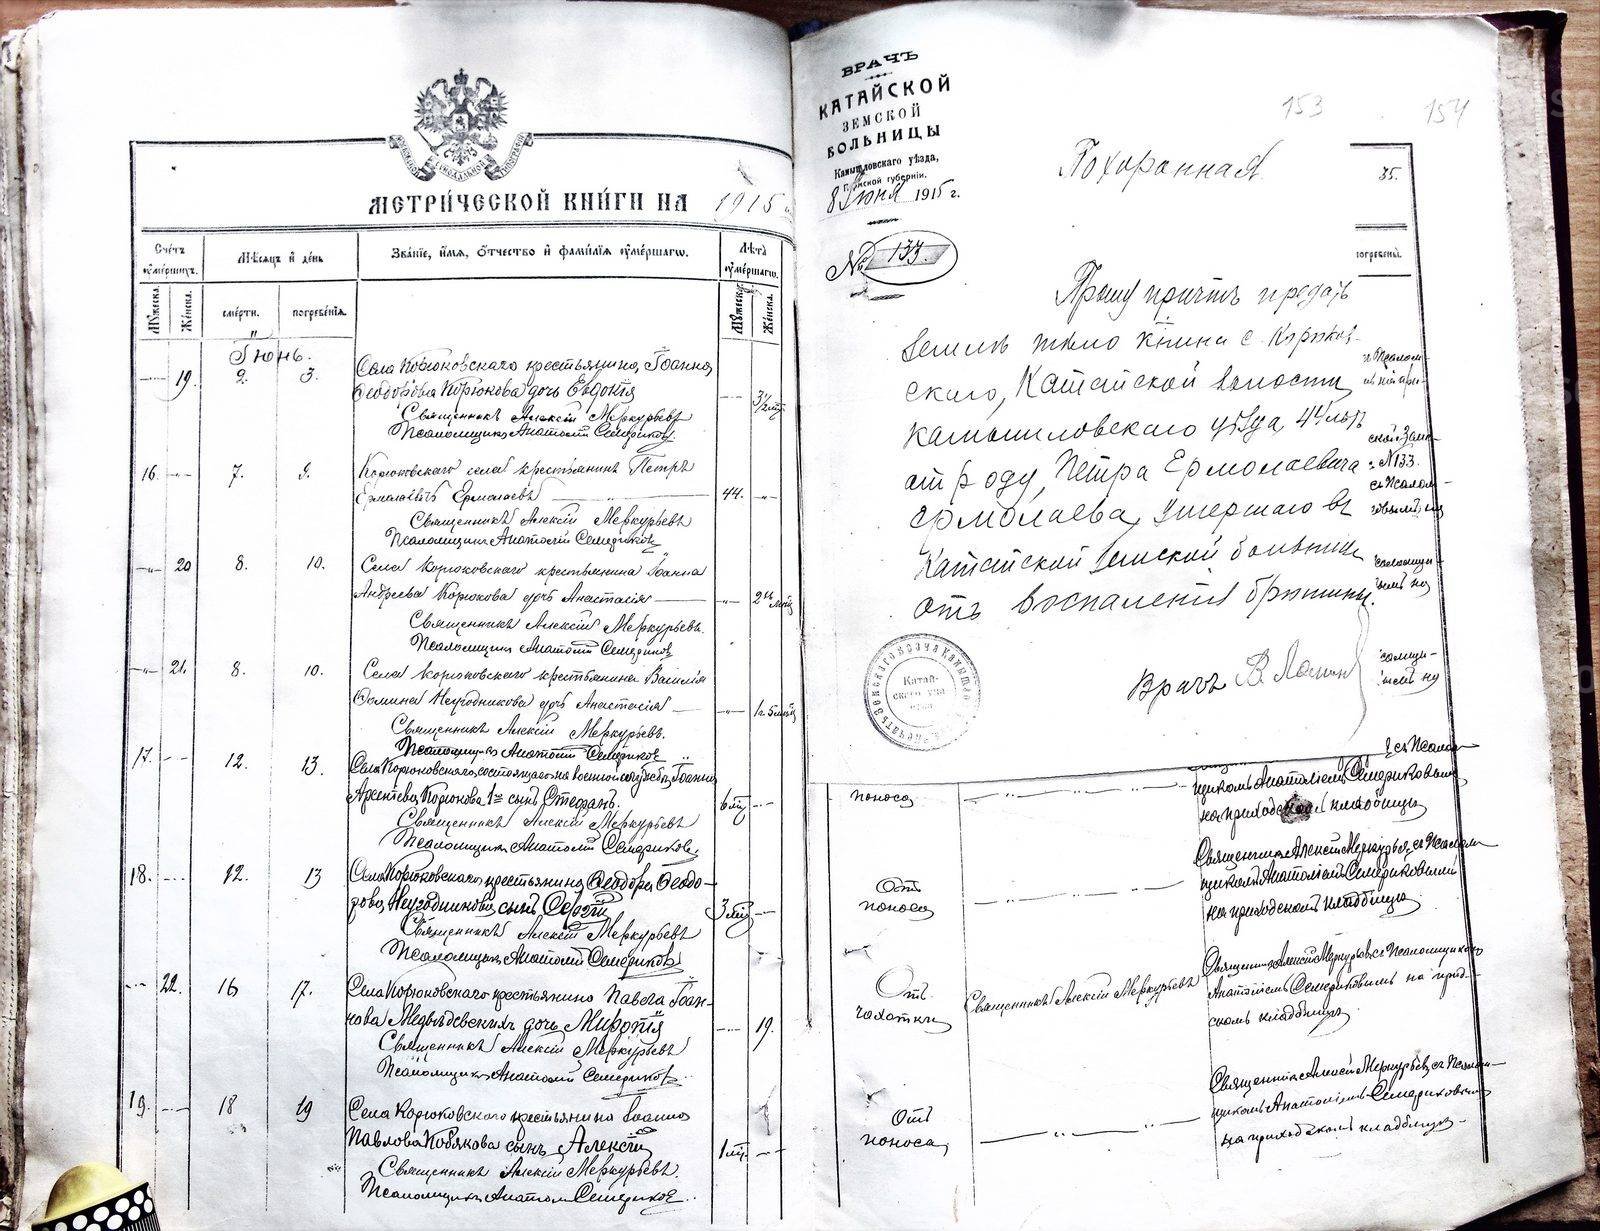 МЕТРИ́ЧЕСКОЙ КНИ́ГИ НА 1915
Счетъ ѹмершихъ.
Мѣсяцъ и день
Званіе, имя, отчество и фамилія ѹмершагѡ.
Лѣта ѹмершагѡ.
Мѹжеска.
Женска.
смерти.
погребенія.
Мѹжеска.
Женска.
Іюнь.
19. 2. 3. Села Корюковскаго крестьянина Іоанна
Ѳеодорова Корюкова дочь Евдокія 3 1/2 мѣс
Священникъ Алексій Меркурьевъ
Псаломщикъ Анатолій Семериковъ
16. 7. 9. Корюковскаго села крестьянинъ Петръ
Ермолаевъ Ермолаевъ 44.
Священникъ Алексій Меркурьевъ
Псаломщикъ Анатолій Семериковъ
20 8. 10. Села Корюковскаго крестьянина Іоанна
Андреева Корюкова дочь Анастасія
Священникъ Алексій Меркурьевъ.
Псаломщикъ Анатолій Семериковъ
21. 8. 10. Села Корюковскаго крестьянина Василія
Ѳомина Негодникова дочь Анастасія 1 г. 5 мѣс
Священникъ Алексій Меркурьевъ.
Псаломщикъ Анатолій Семериковъ
17. 12. 13. Села Корюковскаго, состоящаго на военной службѣ, Іоанна
Арсеніева Корюкова 1й сынъ Стефанъ. 6 мѣс
Священникъ Алексій Меркурьевъ
Псаломщикъ Анатолій Семериковъ.
18. 12. 13 Села Корюковскаго крестьянина Ѳеодора Ѳеодо-
рова Негодникова сынъ Сергій 3 мѣс
Священникъ Алексій Меркурьевъ
Псаломщикъ Анатолій Семериковъ
22. 16 17. Села Корюковскаго крестьянина Павла Іоан-
нова Медвѣдевскихъ дочь 19.
Священникъ Алексій Меркурьевъ
Псаломщикъ Анатолій Семериковъ
19. 18 19 Села Корюковскаго крестьянина Іоанна
Павлова Кобякова сынъ Алексій 1 мѣс.
Священникъ Алексій Меркурьевъ
Псаломщикъ Анатолій Семериковъ.
153
154
ВРАЧЪ
КАТАЙСКОЙ
ЗЕМСКОЙ
БОЛЬНИЦЫ
Камышловскаго уѣзда,
Пермской губерніи.
8 Іюня 1915 г.
№ 133.
Похоронная
Прошу причтъ предать
землѣ тѣло кр-нина с. Корюков-
скаго, Катайской волости,
Камышловскаго уѣзда, 44 лѣтъ
отъ роду, Петра Ермолаевича
Ермолаева, умершаго въ
Катайской земской больницѣ
отъ воспаления брюшины.
Врачъ
Катай-
скаго
погребены.
№133.
поноса
щикомъ Анатоліемъ Семериковымъ
на приходскомъ кладбищѣ
Отъ
поноса
Священникъ Алексій Меркурьевъ съ Псалом-
щикомъ Анатоліемъ Семериковымъ
на приходскомъ кладбищѣ
Отъ
чахотки
Священникъ Алексій Меркурьевъ
Священникъ Алексій Меркурьевъ съ Псаломщикомъ
Анатоліемъ Семериковымъ на приход-
скомъ кладбищѣ.
Отъ
поноса
Священникъ Алексій Меркурьевъ съ Псалом-
щикомъ Анатоліемъ Семериковымъ
на приходскомъ кладбищѣ.